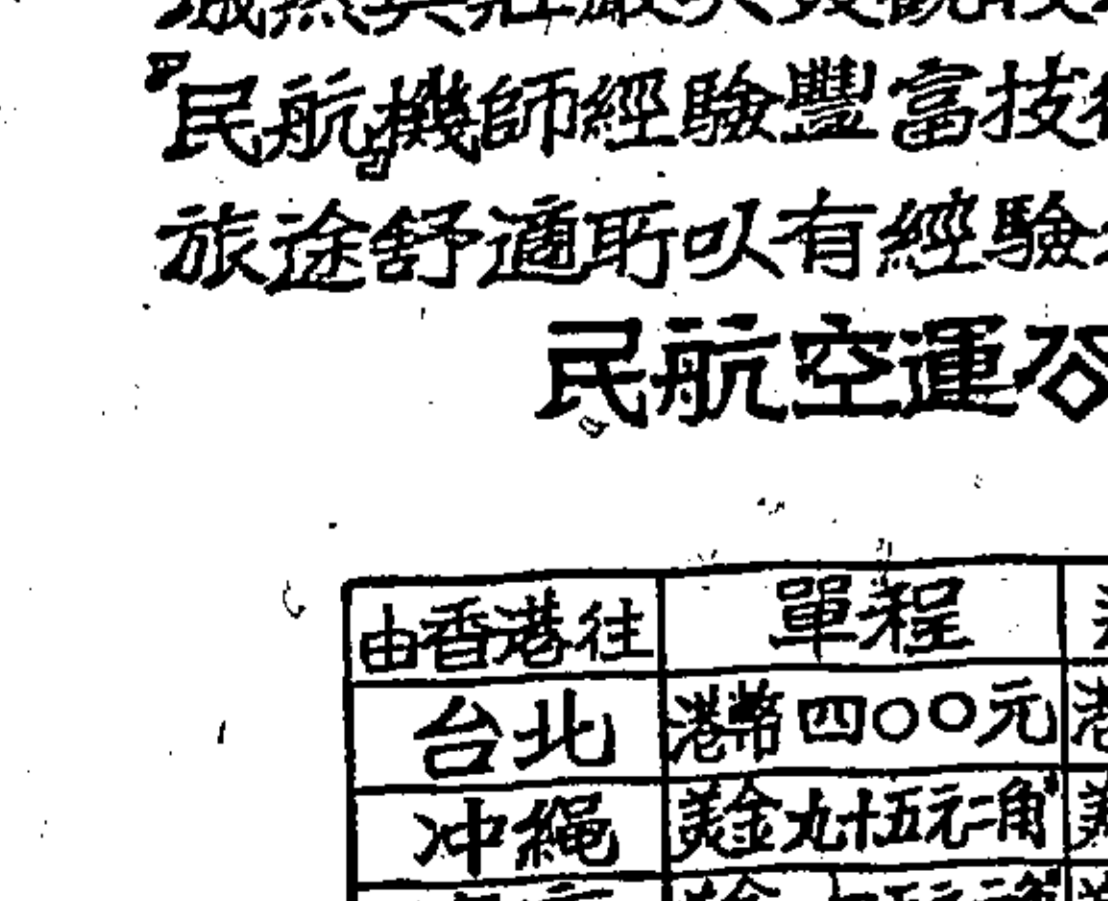 『民航』機師經驗豐富技
旅途舒適所以有經驗
民航空運公
由香港往 單程
台北 港幣四〇〇元
冲繩 美金九十五元二角